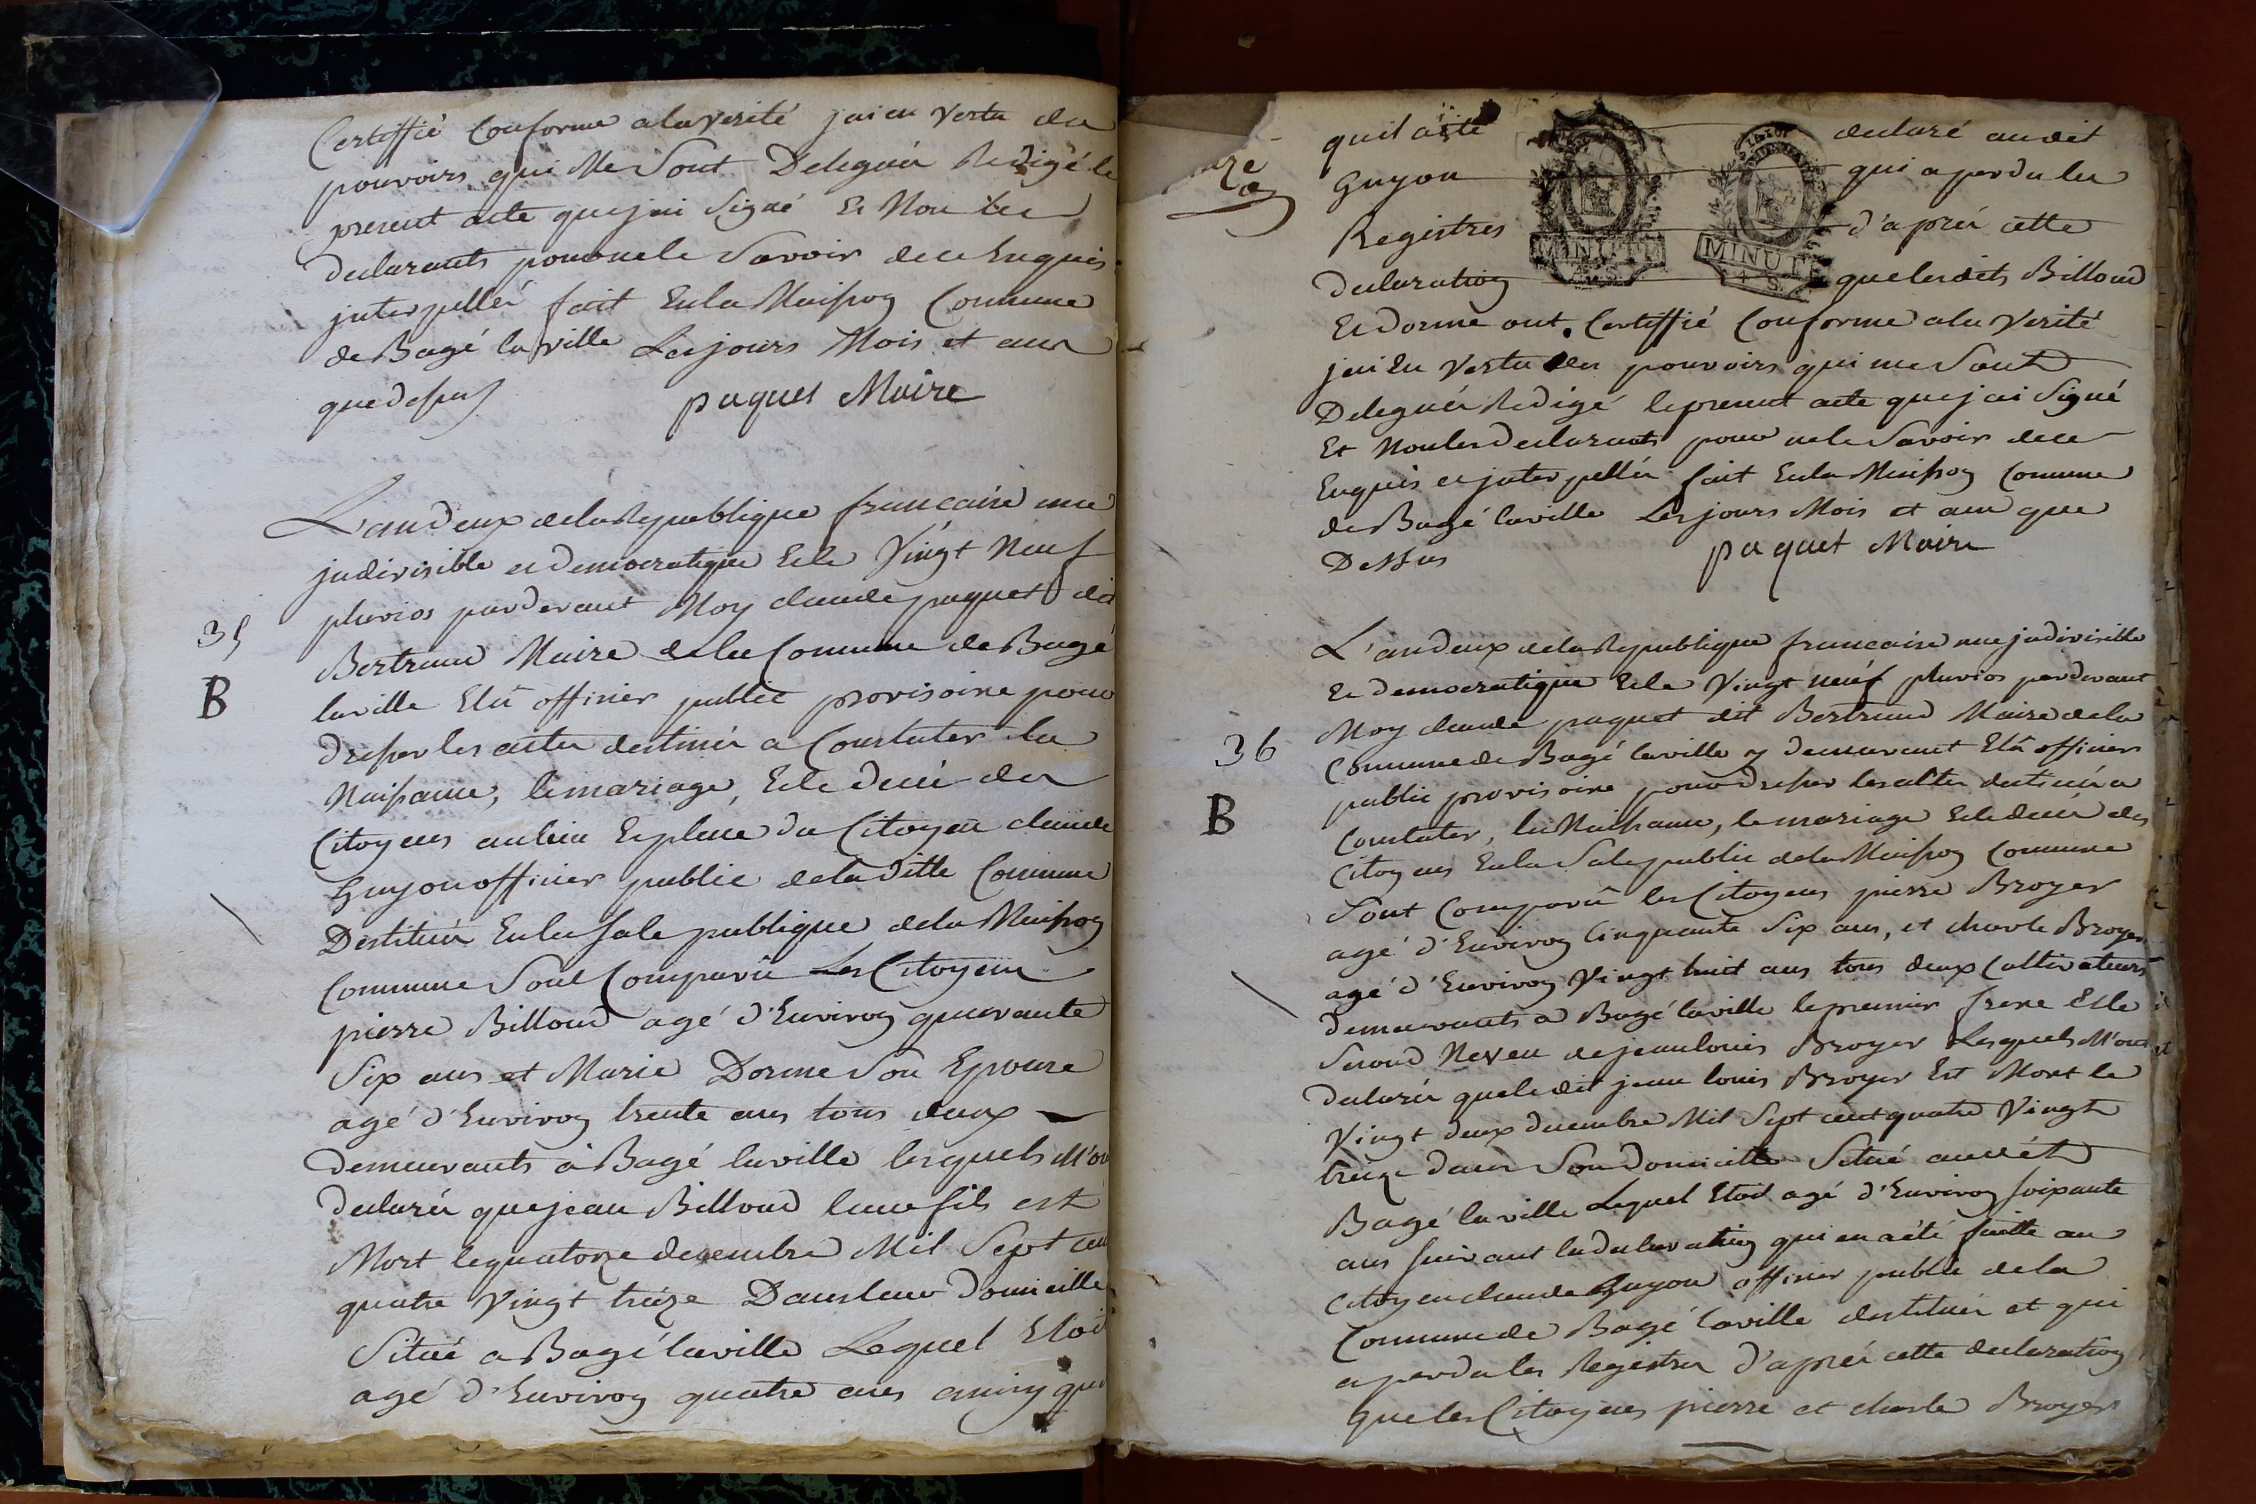 Certiffié Conforme a la verité jai en Vertu des
pouvoirs qui Me Sont Delegués Redigé le
present acte que jai Signé Et Non les
declarants pour ne le Savoir de ce Enquis
interpellés fait En la Maison Commune
de Bagé la ville Les jours Mois et ans
que dessus paquet Maire
L'an deux de la Republique francaise une
jndivisible et democratique Et le Vingt Neuf
pluvios par devant Moy claude paquet dit
35
Bertrand Maire de la Commune de Bagé
B
la ville Elû officier public provisoire pour
dresser les actes destinés a Constater la
Naissance, le mariage, Et le decés des
Citoyens au lieu Et place du Citoyen claude
Guyon officier public de la ditte Commune
Destitués En la sale publique de la Maison
Commune Sont Comparû Les Citoyens
pierre Billoud agé d'Environ quarante
Six ans et Marie Dorme Son Epouse
agé d'Environ trente ans tous deux
demeurants à Bagé la ville lesquels M'on
declarés que jean Billoud leur fils est
Mort le quatorze decembre Mil Sept cen
quatre Vingt treize Dans leur domicille
Situé a Bagé la ville Lequel Etoit
agé d'Environ quatre ans ainsy que
qu'il a été declaré au dit
Guyon qui a perdu les
Registres d'après cette
declaration que lesdits Billoud
Et dorme ont Certiffié Conforme a la Verité
jai En Vertu des pouvoirs qui me Sont
Delegués Redigé le present acte que jai Signé
Et Non les declarants pour ne le Savoir de ce
Enquis et jnterpellés fait En la Maison Comune
de Bagé la ville Les jours Mois et ans que
Dessus paquet Maire
L'an deux de la Republique francaise une jndivisible
Et democratique Et le Vingt neuf pluvios par devant
Moy claude paquet dit Bertrand Maire de la
36
Commune de Bagé la ville y demeurant Elû officier
public provisoire pour dresser les actes destinés a
B
Constater, la Naissance, le mariage Et le decés des
Citoyens En la Sale public de la Maison Commune
Sont Comparû les Citoyens pierre Broyer
agé d'Environ Cinquante Six ans, et charle Broyer
agé d'Environ Vingt huit ans tous deux Cultivateurs
demeurants a Bagé la ville le premier frere Et le
Second Neveu de jean louis Broyer Lesquels M'ont
declarés que le dit jean louis Broyer Est Mort le
Vingt deux decembre Mil Sept cent quatre Vingt
treize dans Son domicille Situé au dit
Bagé la ville Lequel Etoit agé d'Environ soixante
ans suivant la declaration qui en a été faitte au
Citoyen claude Guyon officier public de la
Commune de Bagé la ville destitués et qui
a perdu les Registres d'après cette declaration
que les Citoyens pierre et charle Broyer